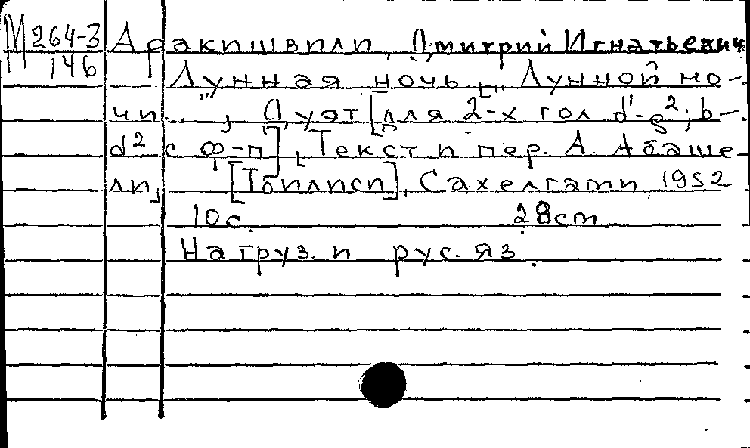 М 264-3 Аракишвили, Дмитрий Игнатьевич
146 Лунная ночь. „Лунной но-
чи...", Дуэт [для 2-х гол d¹-g²; b-
d² с ф-п]. Текст и пер. А. Абаше-
ли, [Тбилиси], Сахелгами 1952
10с. 28cm
На груз. и рус. яз.